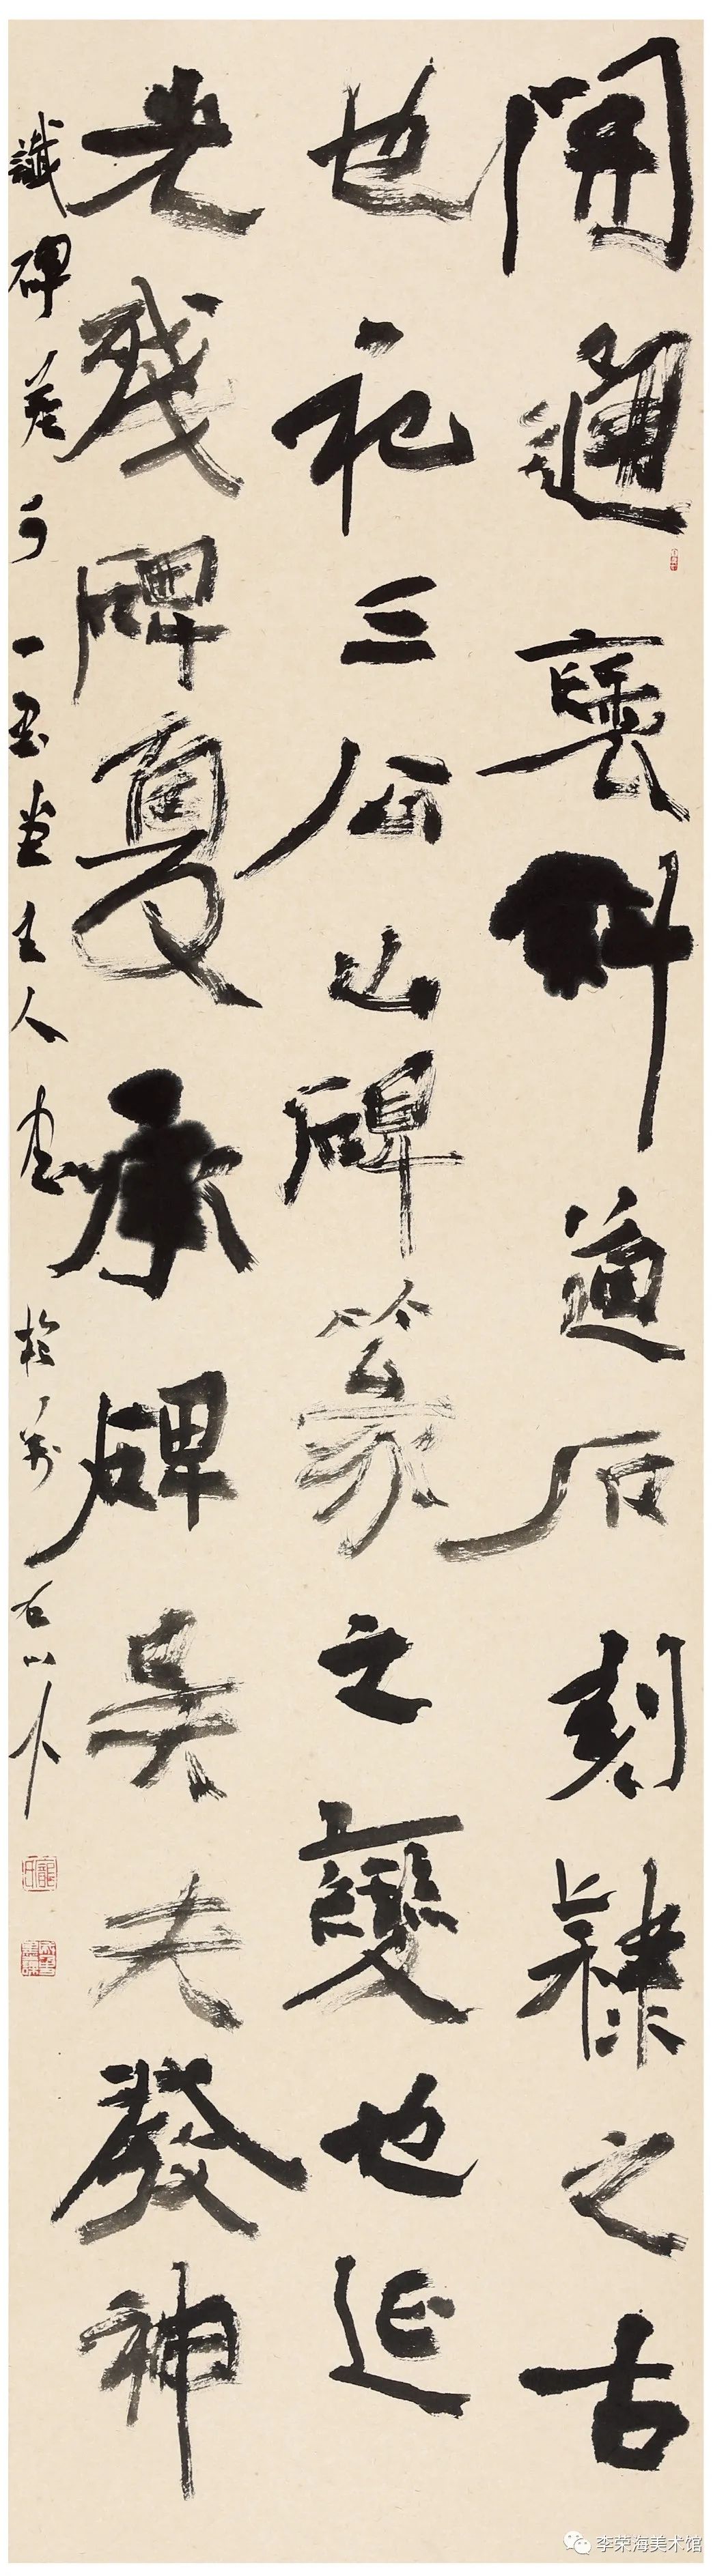 開通褒斜道石刻隸之古
也祀三公山碑篆之變也延
光殘碑夏承碑吳天發神
讖碑差可一堂主人書於
李荣海美术馆